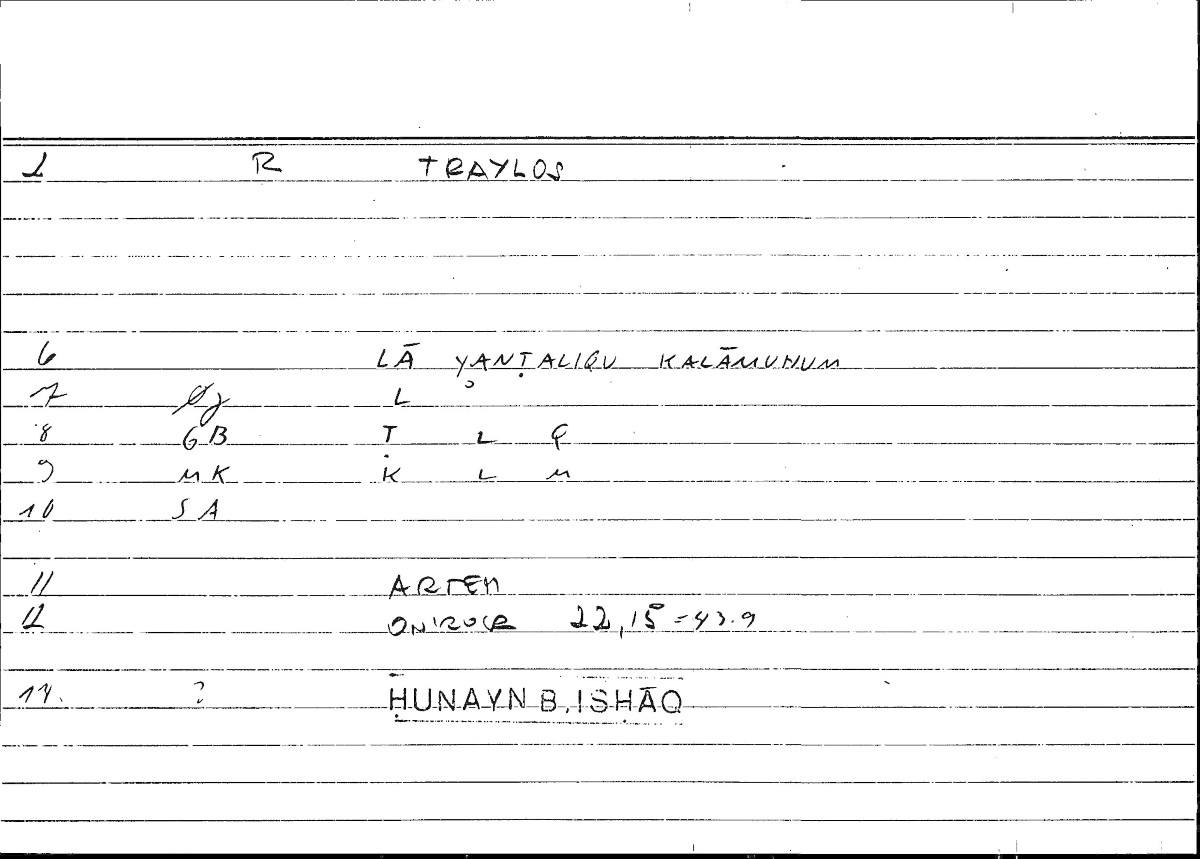 1 R TRAYLOS
6 LĀ YANṬALIQU KALĀMUHUM
7 Øj L
8 GB Ṭ L Q
9 MK K L M
10 SA
11 ARTEM
12 ONIROCR 22,15 = 43.9
14. ? ḤUNAYN B. ISḤĀQ